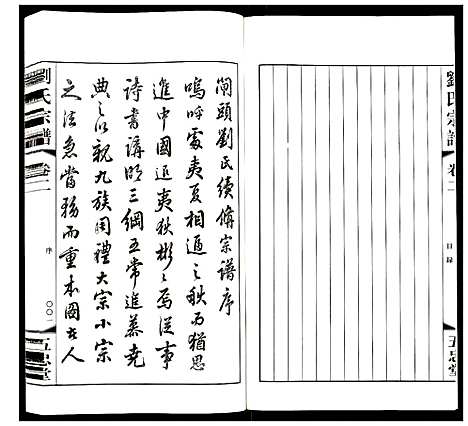 劉氏宗譜
卷二
目錄
五忠堂
閘頭劉氏續修宗譜序
嗚呼處夷夏相逼之秋而猶思
進中國退夷狄彬彬焉從事
詩書講明三綱五常進慕堯
典之以親九族周禮大宗小宗
之法急當務而重本圖古人
劉氏宗譜
卷二
序
〇〇一
五忠堂